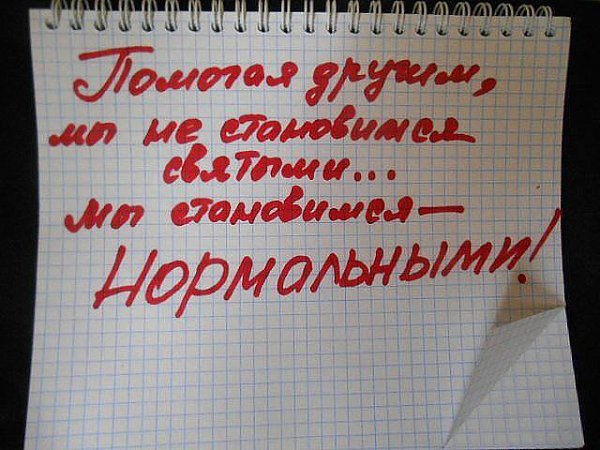 Помогая другим,
мы не становимся
святыми...
мы становимся—
НОРМАЛЬНЫМИ!